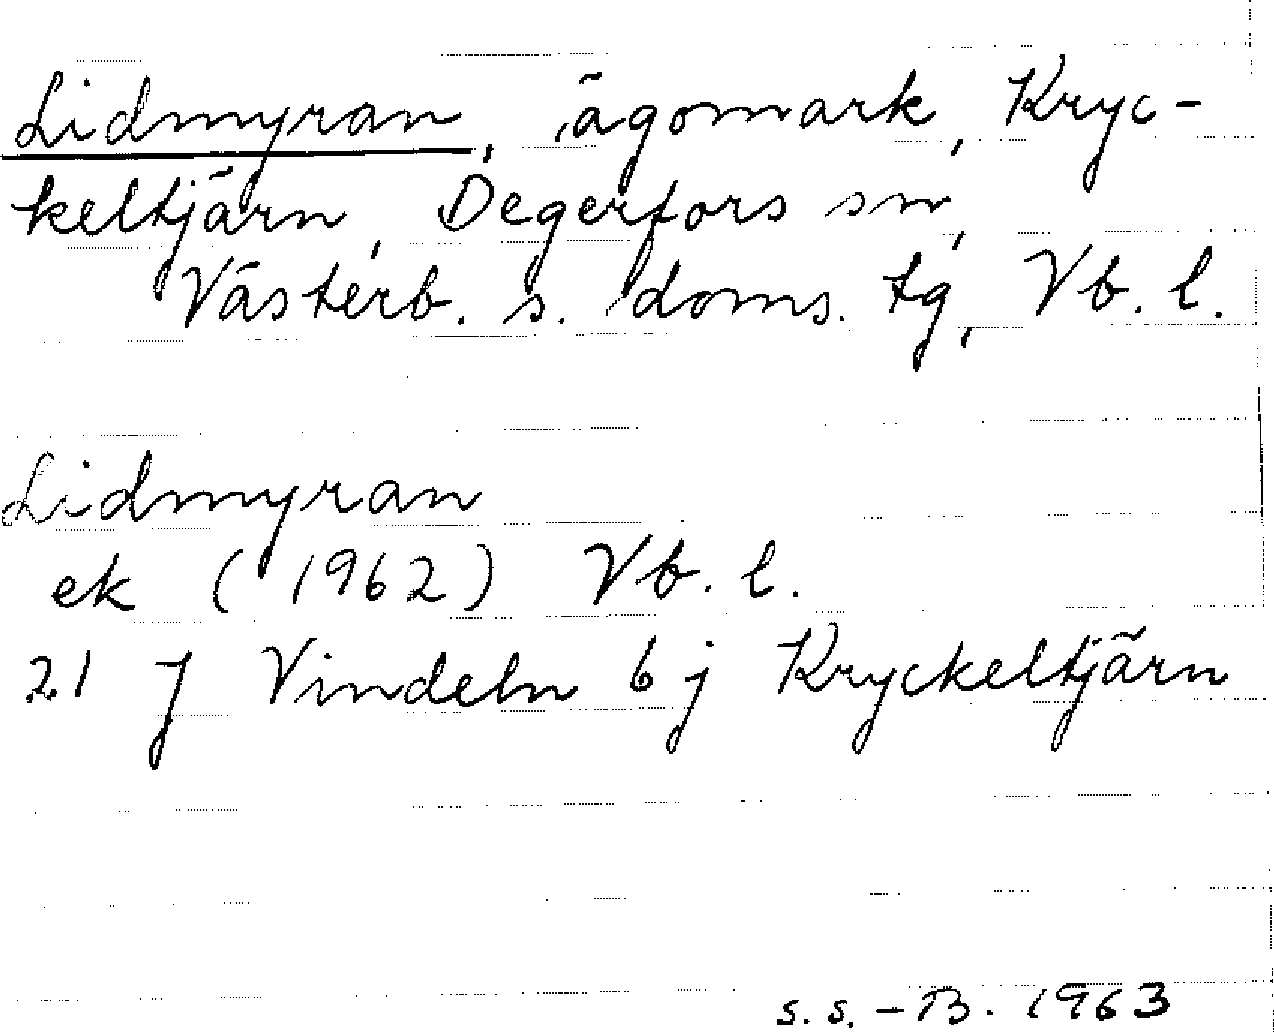 Lidmyran, ägomark, Kryc-
keltjärn, Degerfors sn,
Västerb. s. doms. tg, Vb. l.
Lidmyran
ek (1962) Vb. l.
21 J Vindeln 6 j Kryckeltjärn
s. s. - B. 1963